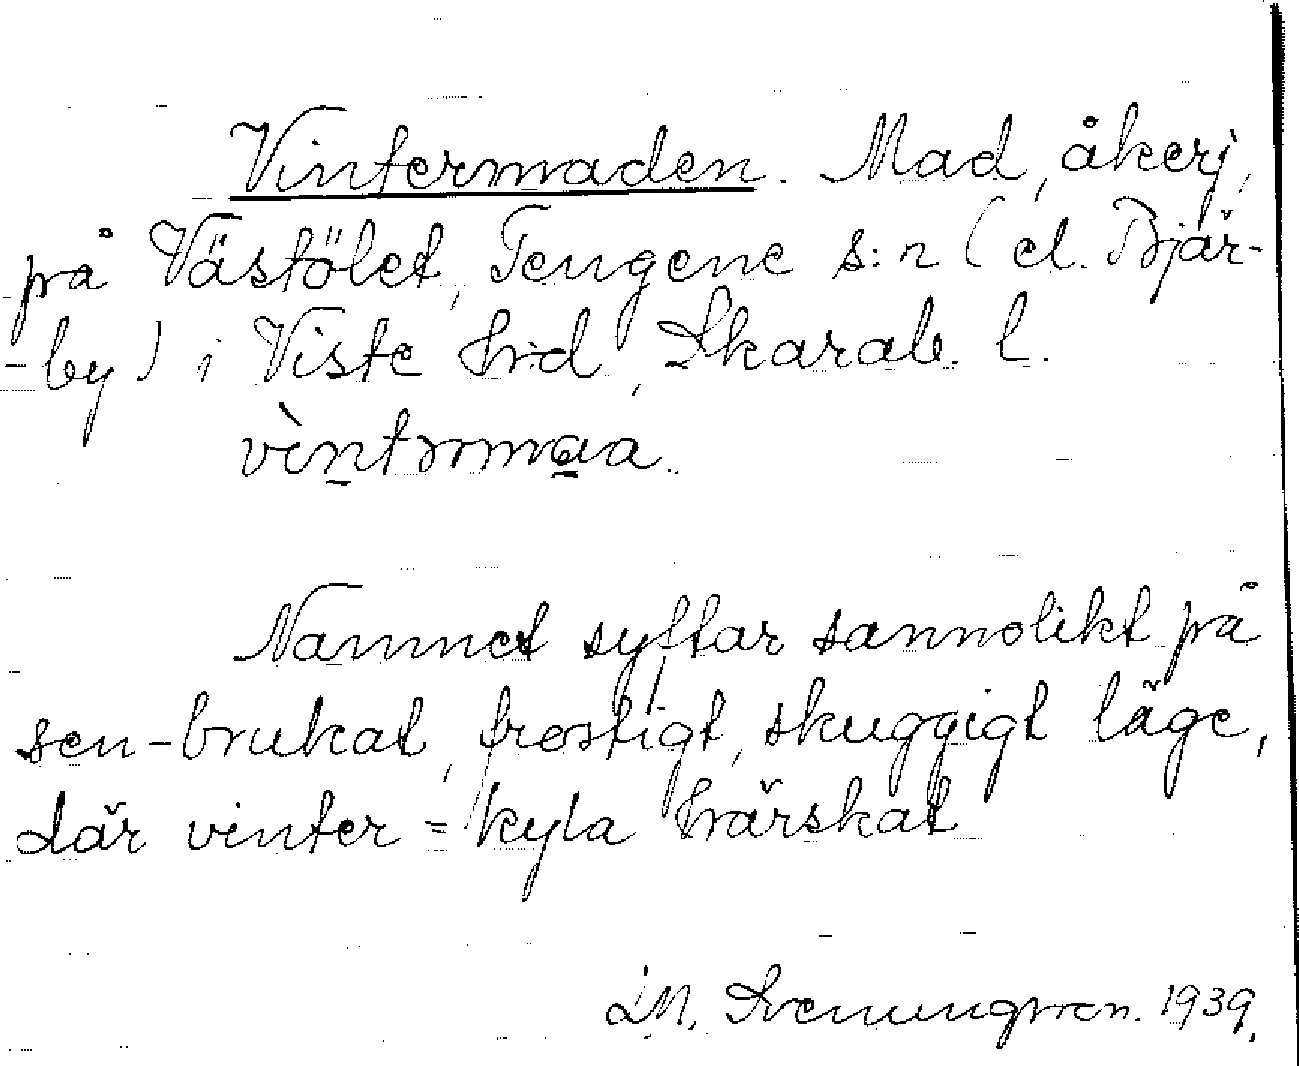 Vintermaden. Mad, åkerj,
på Västölet, Tengene s:n (el. Bjär-
-by) i Viste hrd, Skarab. l.
vìntərmaa.
Namnet syftar sannolikt på
sen-brukat, frostigt, skuggigt läge,
där vinter-kyla härskat
Svenungsson. 1939.